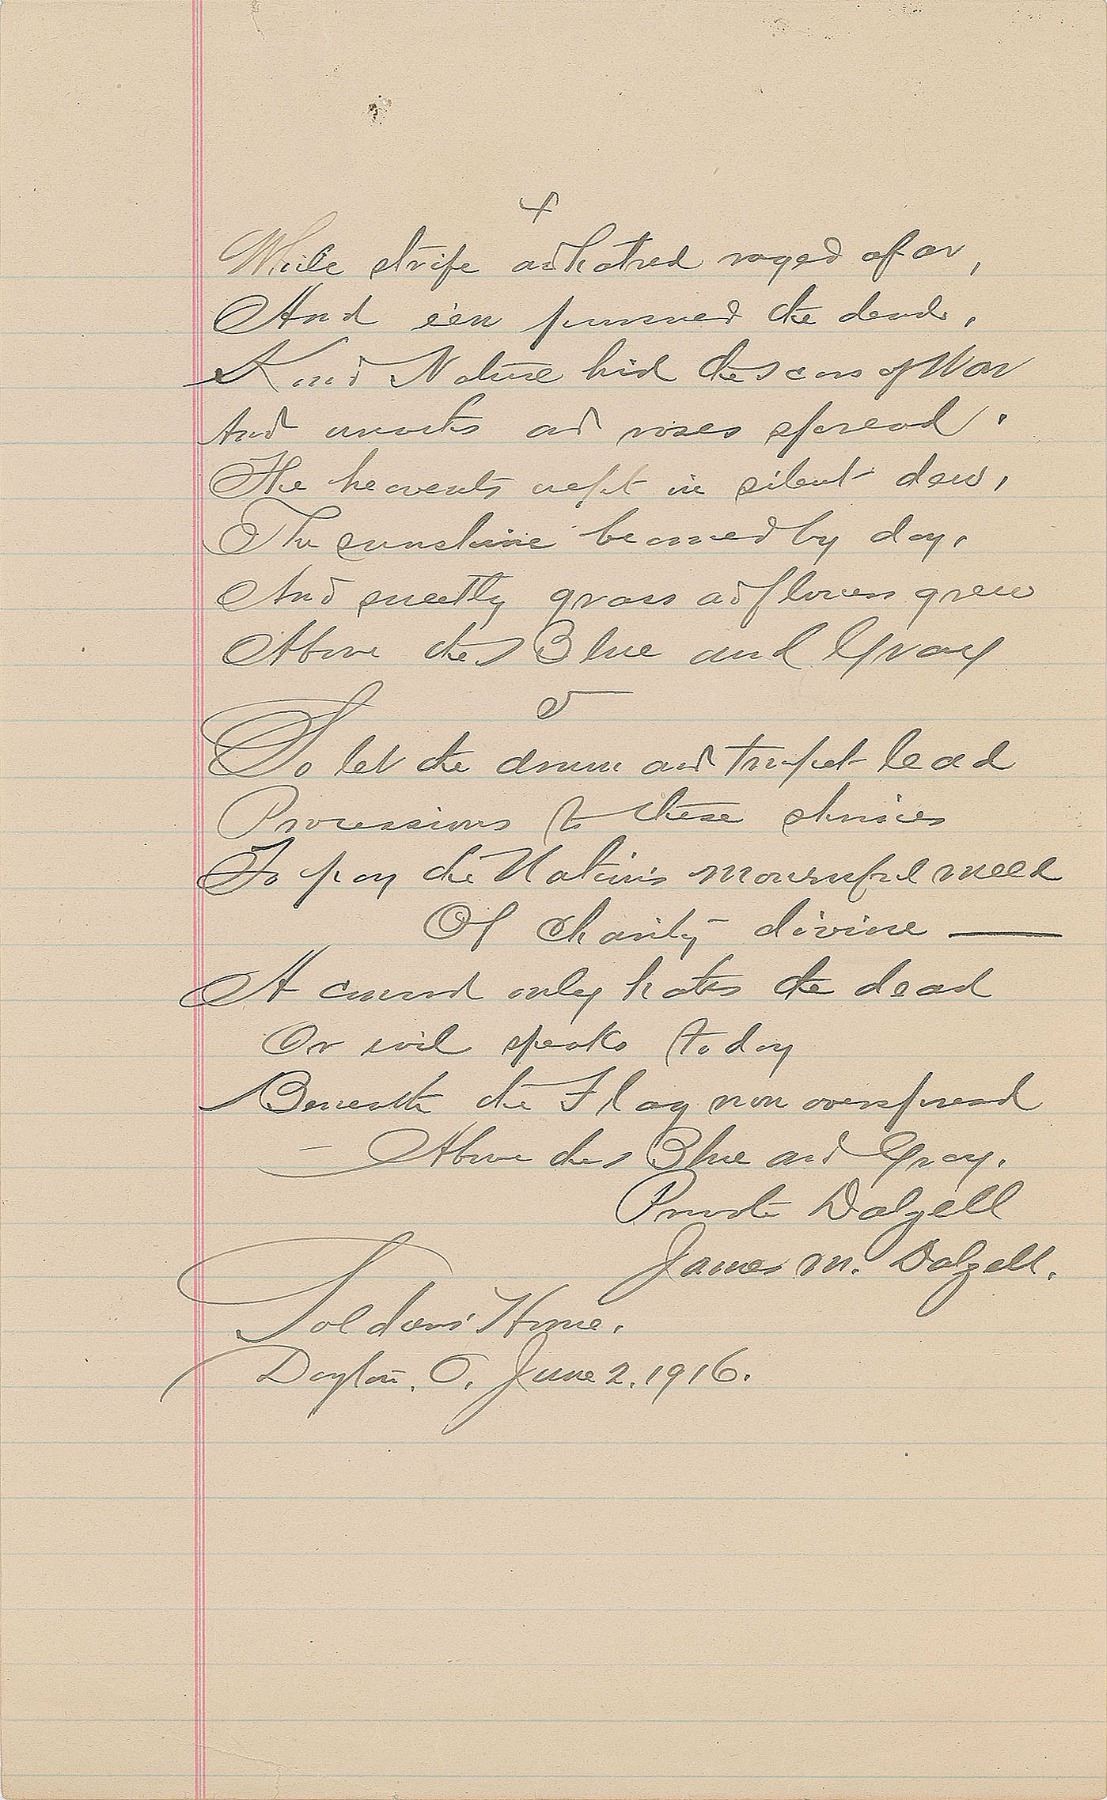 4
While strife and hatred raged afar,
And e'en pursued the dead,
Kind Nature hid the scars of War
And and roses spread.
The heavens wept in silent dew,
The sunshine beamed by day,
And sweetly grass and flowers grew
Above the Blue and Gray
5
So let the drum and trumpet lead
Processions to these shrines
To pay the Nation's mournful meed
Of charity divine —
A coward only hates the dead
Or evil speaks today
Beneath the Flag now overspread
— Above the Blue and Gray.
Private Dalzell
James M. Dalzell.
Soldiers' Home.
Dayton, O. June 2, 1916.